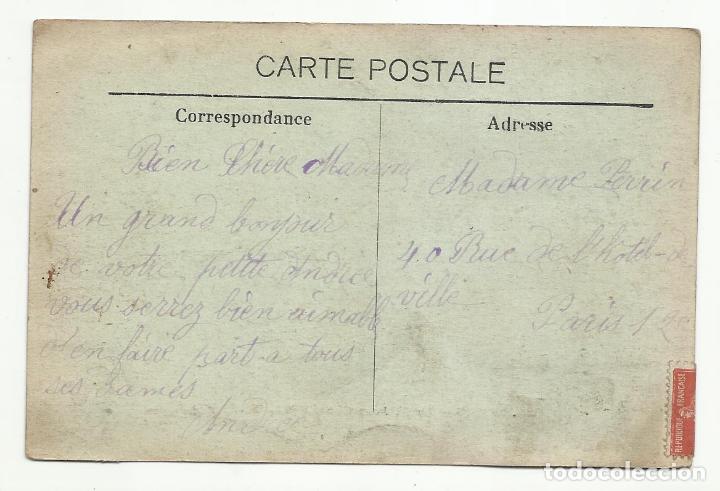 CARTE POSTALE
Correspondance
Adresse
Bien Chère Madame
Un grand bonjour
de votre petite Andrée
vous serrez bien aimable
d'en faire part a tous
ses Dames
Andrée
Madame Perrin
40 Rue de l'hôtel-de
ville
Paris
REPUBLIQUE FRANÇAISE
todocoleccion